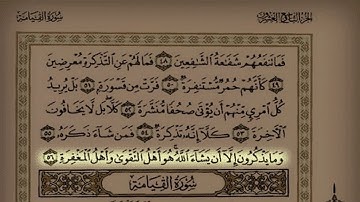 سُورَةُ القِيَامَةِ الجُزْءُ التَّاسِعُ وَالعِشْرُونَ
فَمَا تَنفَعُهُمْ شَفَاعَةُ الشَّافِعِينَ ٤٨ فَمَا لَهُمْ عَنِ التَّذْكِرَةِ مُعْرِضِينَ
٤٩ كَأَنَّهُمْ حُمُرٌ مُّسْتَنفِرَةٌ ٥٠ فَرَّتْ مِن قَسْوَرَةٍ ٥١ بَلْ يُرِيدُ
كُلُّ امْرِئٍ مِّنْهُمْ أَن يُؤْتَىٰ صُحُفًا مُّنَشَّرَةً ٥٢ كَلَّا بَل لَّا يَخَافُونَ
الْآخِرَةَ ٥٣ كَلَّا إِنَّهُ تَذْكِرَةٌ ٥٤ فَمَن شَاءَ ذَكَرَهُ ٥٥
وَمَا يَذْكُرُونَ إِلَّا أَن يَشَاءَ اللَّهُ هُوَ أَهْلُ التَّقْوَىٰ وَأَهْلُ الْمَغْفِرَةِ ٥٦
سُورَةُ القِيَامَةِ